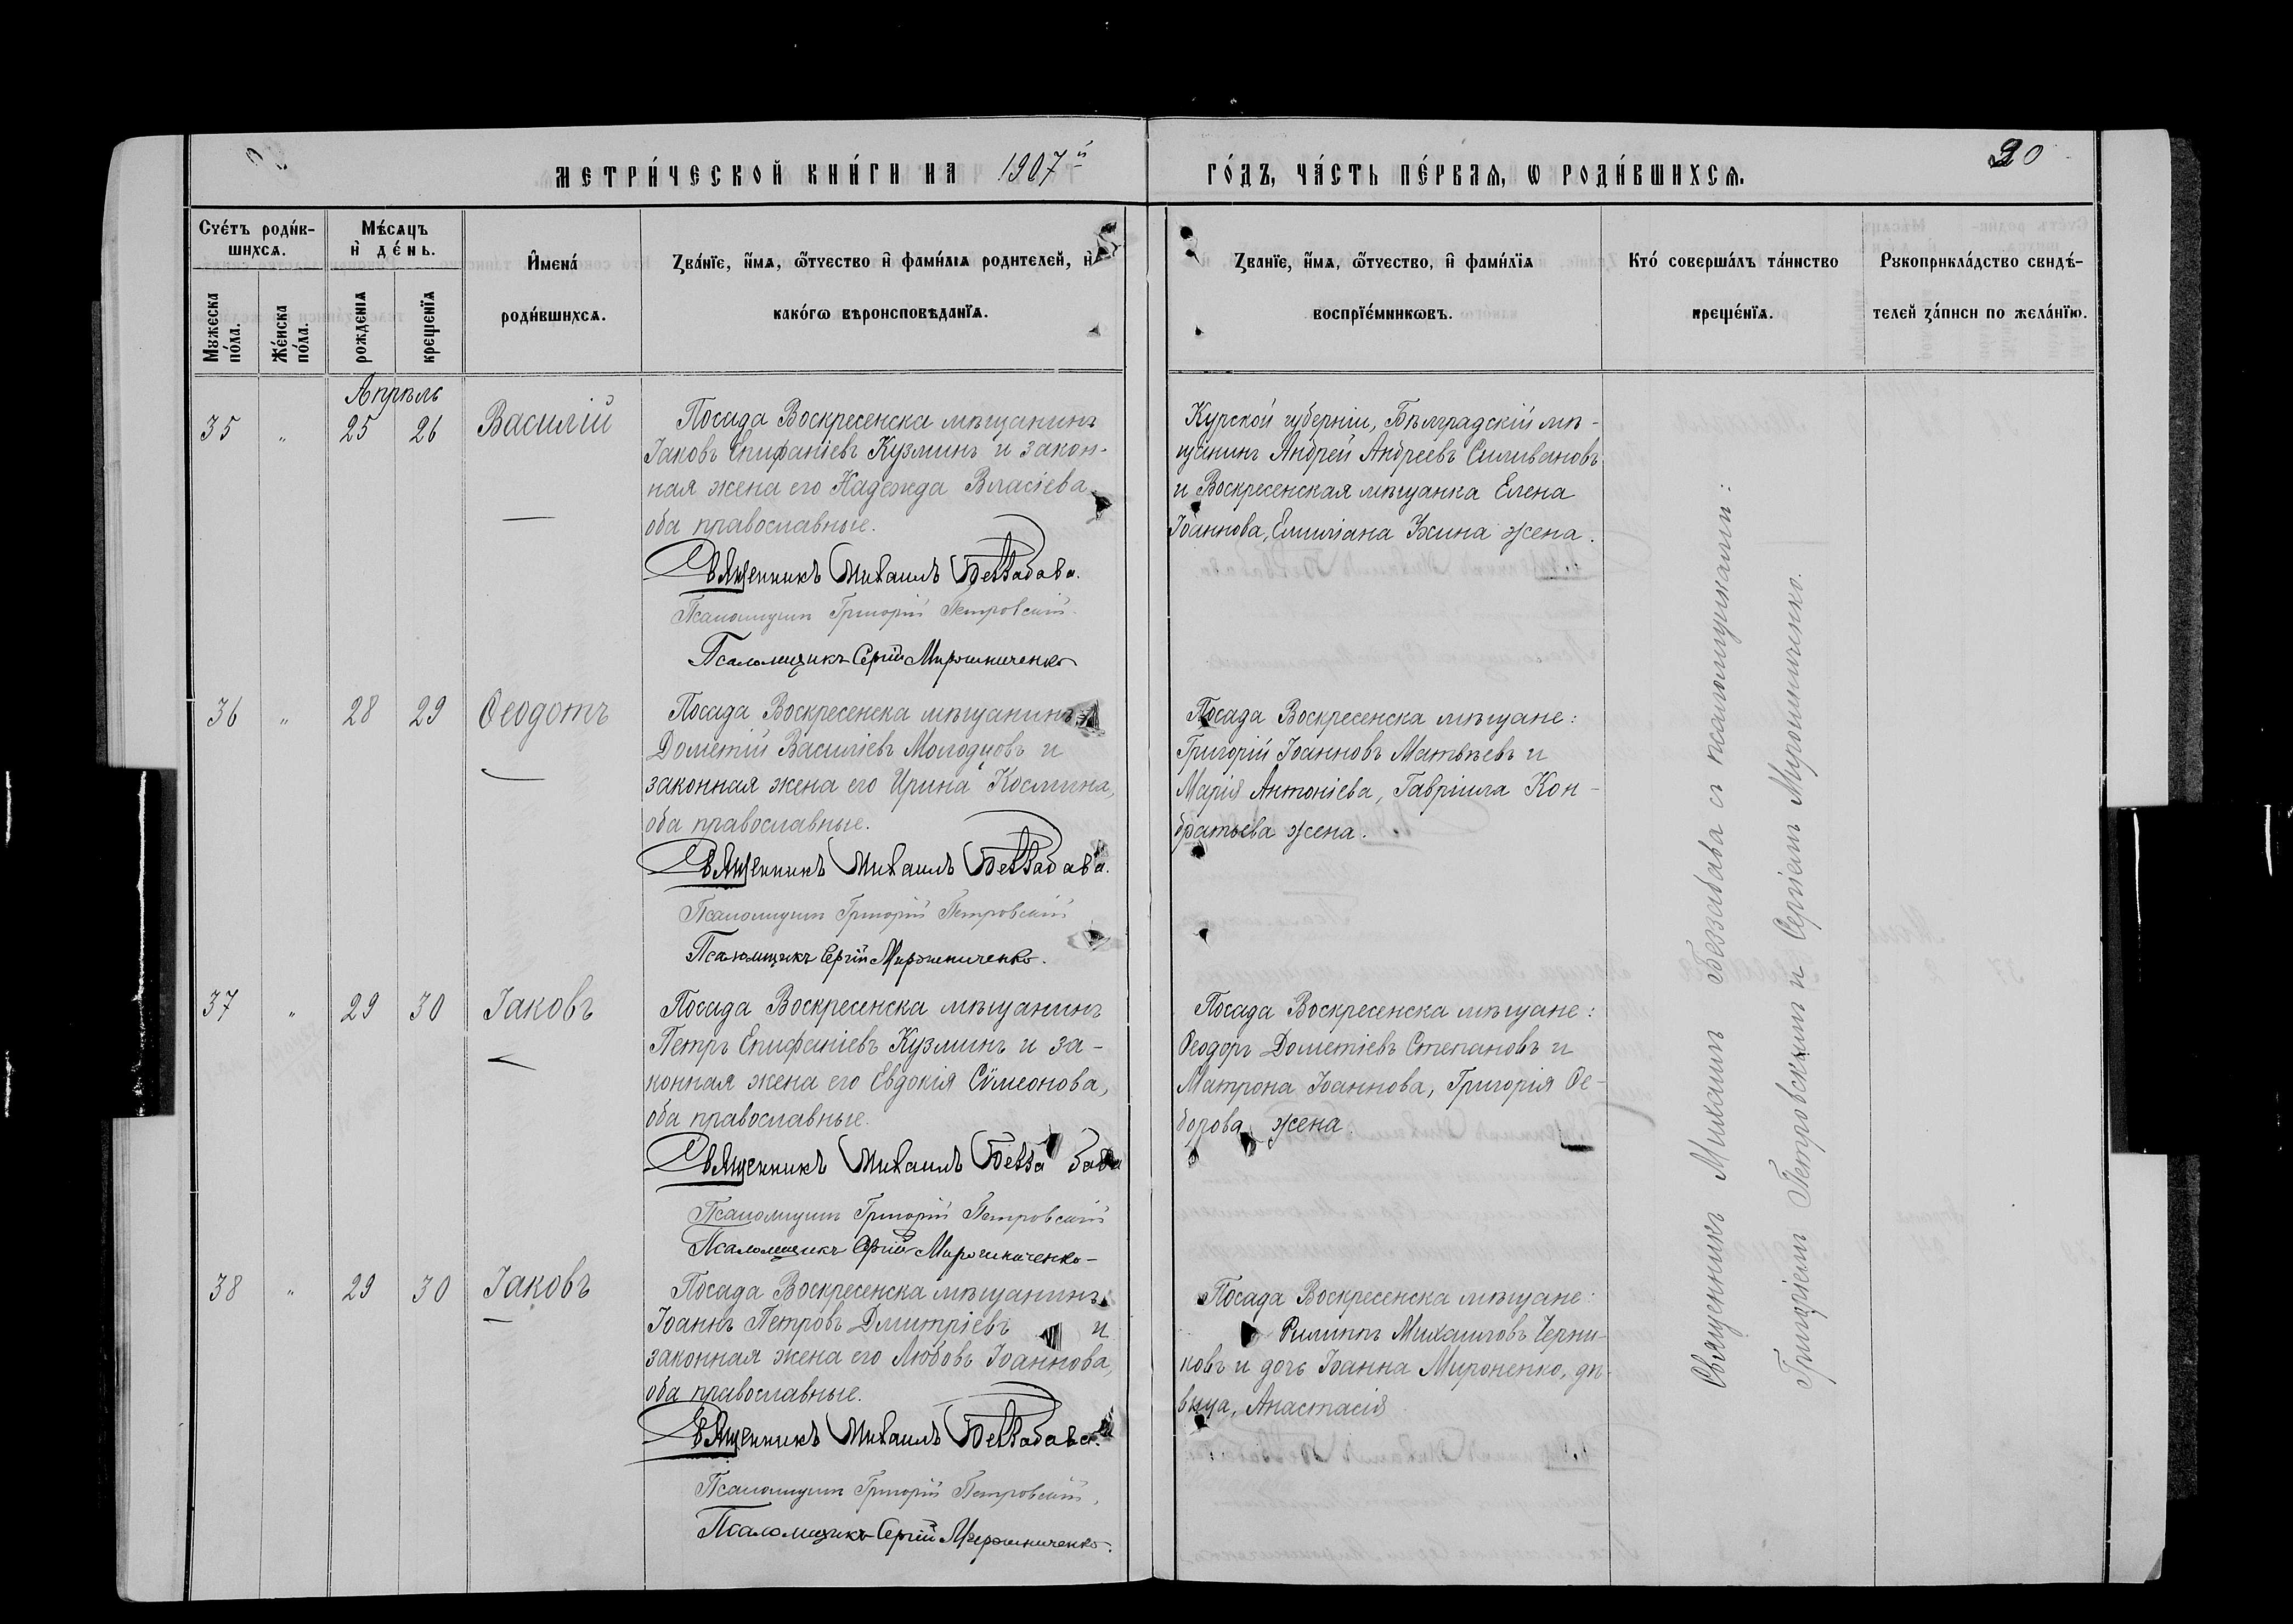 МЕТРИ́ЧЕСКОЙ КНИ́ГИ НА 1907й
ГО́ДЪ, ЧА́СТЬ ПЕ́РВАЯ, Ѡ РОДИ́ВШИХСЯ.
20
Сче́тъ роди́в-
шихся.
Мѣ́сяцъ
и҆ де́нь.
Мꙋжеска
по́ла.
Же́нска
по́ла.
рожденїѧ
крещенїѧ
И҆мена́
роди́вшихсѧ.
Зва́нїе, и҆́мѧ, ѻ҆́тчество и҆ фами́лїѧ родителей, и҆
како́гѡ вѣроисповѣданїѧ.
Зва́нїе, и҆́мѧ, ѻ҆́тчество, и҆ фами́лїѧ
воспрїе́мникѡвъ.
Кто́ соверша́лъ та́инство
креще́нїѧ.
Рꙋкоприкла́дство свидѣ́-
телей за́писи по жела́нїю.
Апрѣль
35 " 25 26 Василій
Посада Воскресенска мѣщанинъ
Іаковъ Епифаніевъ Кузминъ и закон-
ная жена его Надежда Власіева,
оба православные.
Священникъ Михаилъ Беззабава.
Псаломщикъ Григорій Петровскій.
Псаломщикъ Сергій Мирошниченко
Курской губерніи, Бѣлградскій мѣ-
щанинъ Андрей Андреевъ Силивановъ
и Воскресенская мѣщанка Елена
Іоаннова, Емиліана Жена жена.
36 " 28 29 Ѳеодотъ
Посада Воскресенска мѣщанинъ
Дометій Василіевъ Молодцовъ и
законная жена его Ирина Космина,
оба православные.
Священникъ Михаилъ Беззабава.
Псаломщикъ Григорій Петровскій
Псаломщикъ Сергій Мирошниченко.
Посада Воскресенска мѣщане:
Григорій Іоанновъ Матвѣевъ и
Марія Антоніева, Гавріила Кон-
дратьева жена.
37 " 29 30 Іаковъ
Посада Воскресенска мѣщанинъ
Петръ Епифаніевъ Кузминъ и за-
конная жена его Евдокія Сѵмеонова,
оба православные.
Священникъ Михаилъ Беззабава
Псаломщикъ Григорій Петровскій
Псаломщикъ Сергій Мирошниченко
Посада Воскресенска мѣщане:
Ѳеодоръ Дометіевъ Степановъ и
Матрона Іоаннова, Григорія Ѳе-
дорова жена.
38 " 29 30 Іаковъ
Посада Воскресенска мѣщанинъ
Іоаннъ Петровъ Дмитріевъ и
законная жена его Любовь Іоаннова,
оба православные.
Священникъ Михаилъ Беззабава.
Псаломщикъ Григорій Петровскій,
Псаломщикъ Сергій Мирошниченко.
Посада Воскресенска мѣщане:
Филиппъ Михаиловъ Черни-
ковъ и дочь Іоанна Мироненко, дѣ-
вица, Анастасія
Священникъ Михаилъ Беззабава съ псаломщиками:
Григоріемъ Петровскимъ и Сергіемъ Мирошниченко.